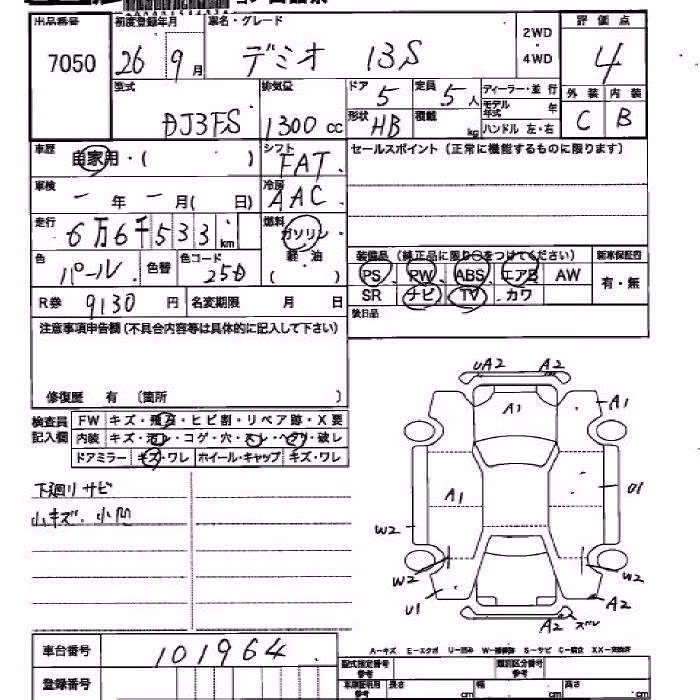 出品番号 初度登録年月 車名・グレード 2WD・4WD 評価点
7050 26 9月 デミオ 13S 4
型式 排気量 ドア 5 定員 5人 ディーラー・並行 外装 内装
DJ3FS 1300cc 形状 HB 積載 kg モデル年式 年 C B
ハンドル 左・右
車歴 自家用・( ) シフト FAT セールスポイント(正常に機能するものに限ります)
車検 ー年ー月( 日) 冷房 AAC
走行 6万6千533km 燃料 ガソリン
軽・油
( )
色 パール 色替 色コード 25D
装備品(純正品に限り○をつけてください) 新車保証書
PS PW ABS エアB AW 有・無
SR ナビ TV カワ
R券 9130円 名変期限 月 日 後日品
注意事項申告欄(不具合内容等は具体的に記入して下さい)
修復歴 有 〔箇所 〕
検査員記入欄
FW キズ・飛石・ヒビ割・リペア跡・X要
内装 キズ・汚レ・コゲ・穴・スレ・ヘタリ・破レ
ドアミラー キズ・ワレ ホイール・キャップ キズ・ワレ
下廻りサビ
小キズ.小凹
UA2 A2
A1 A1
A1 U1
W2
W2 W2
U1 A2
A2 ズレ
A-キズ E-エクボ U-凹み W-補修跡 S-サビ C-腐食 XX-交換済
車台番号 101964
型式指定番号 類別区分番号
登録番号
車庫証明用参考 長さ cm 幅 cm 高さ cm